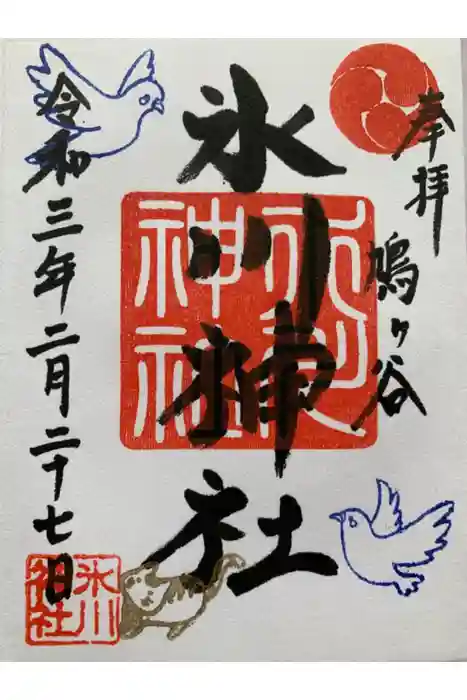 奉拝
鳩ヶ谷
氷川神社
氷川神社
令和三年二月二十七日
氷川神社